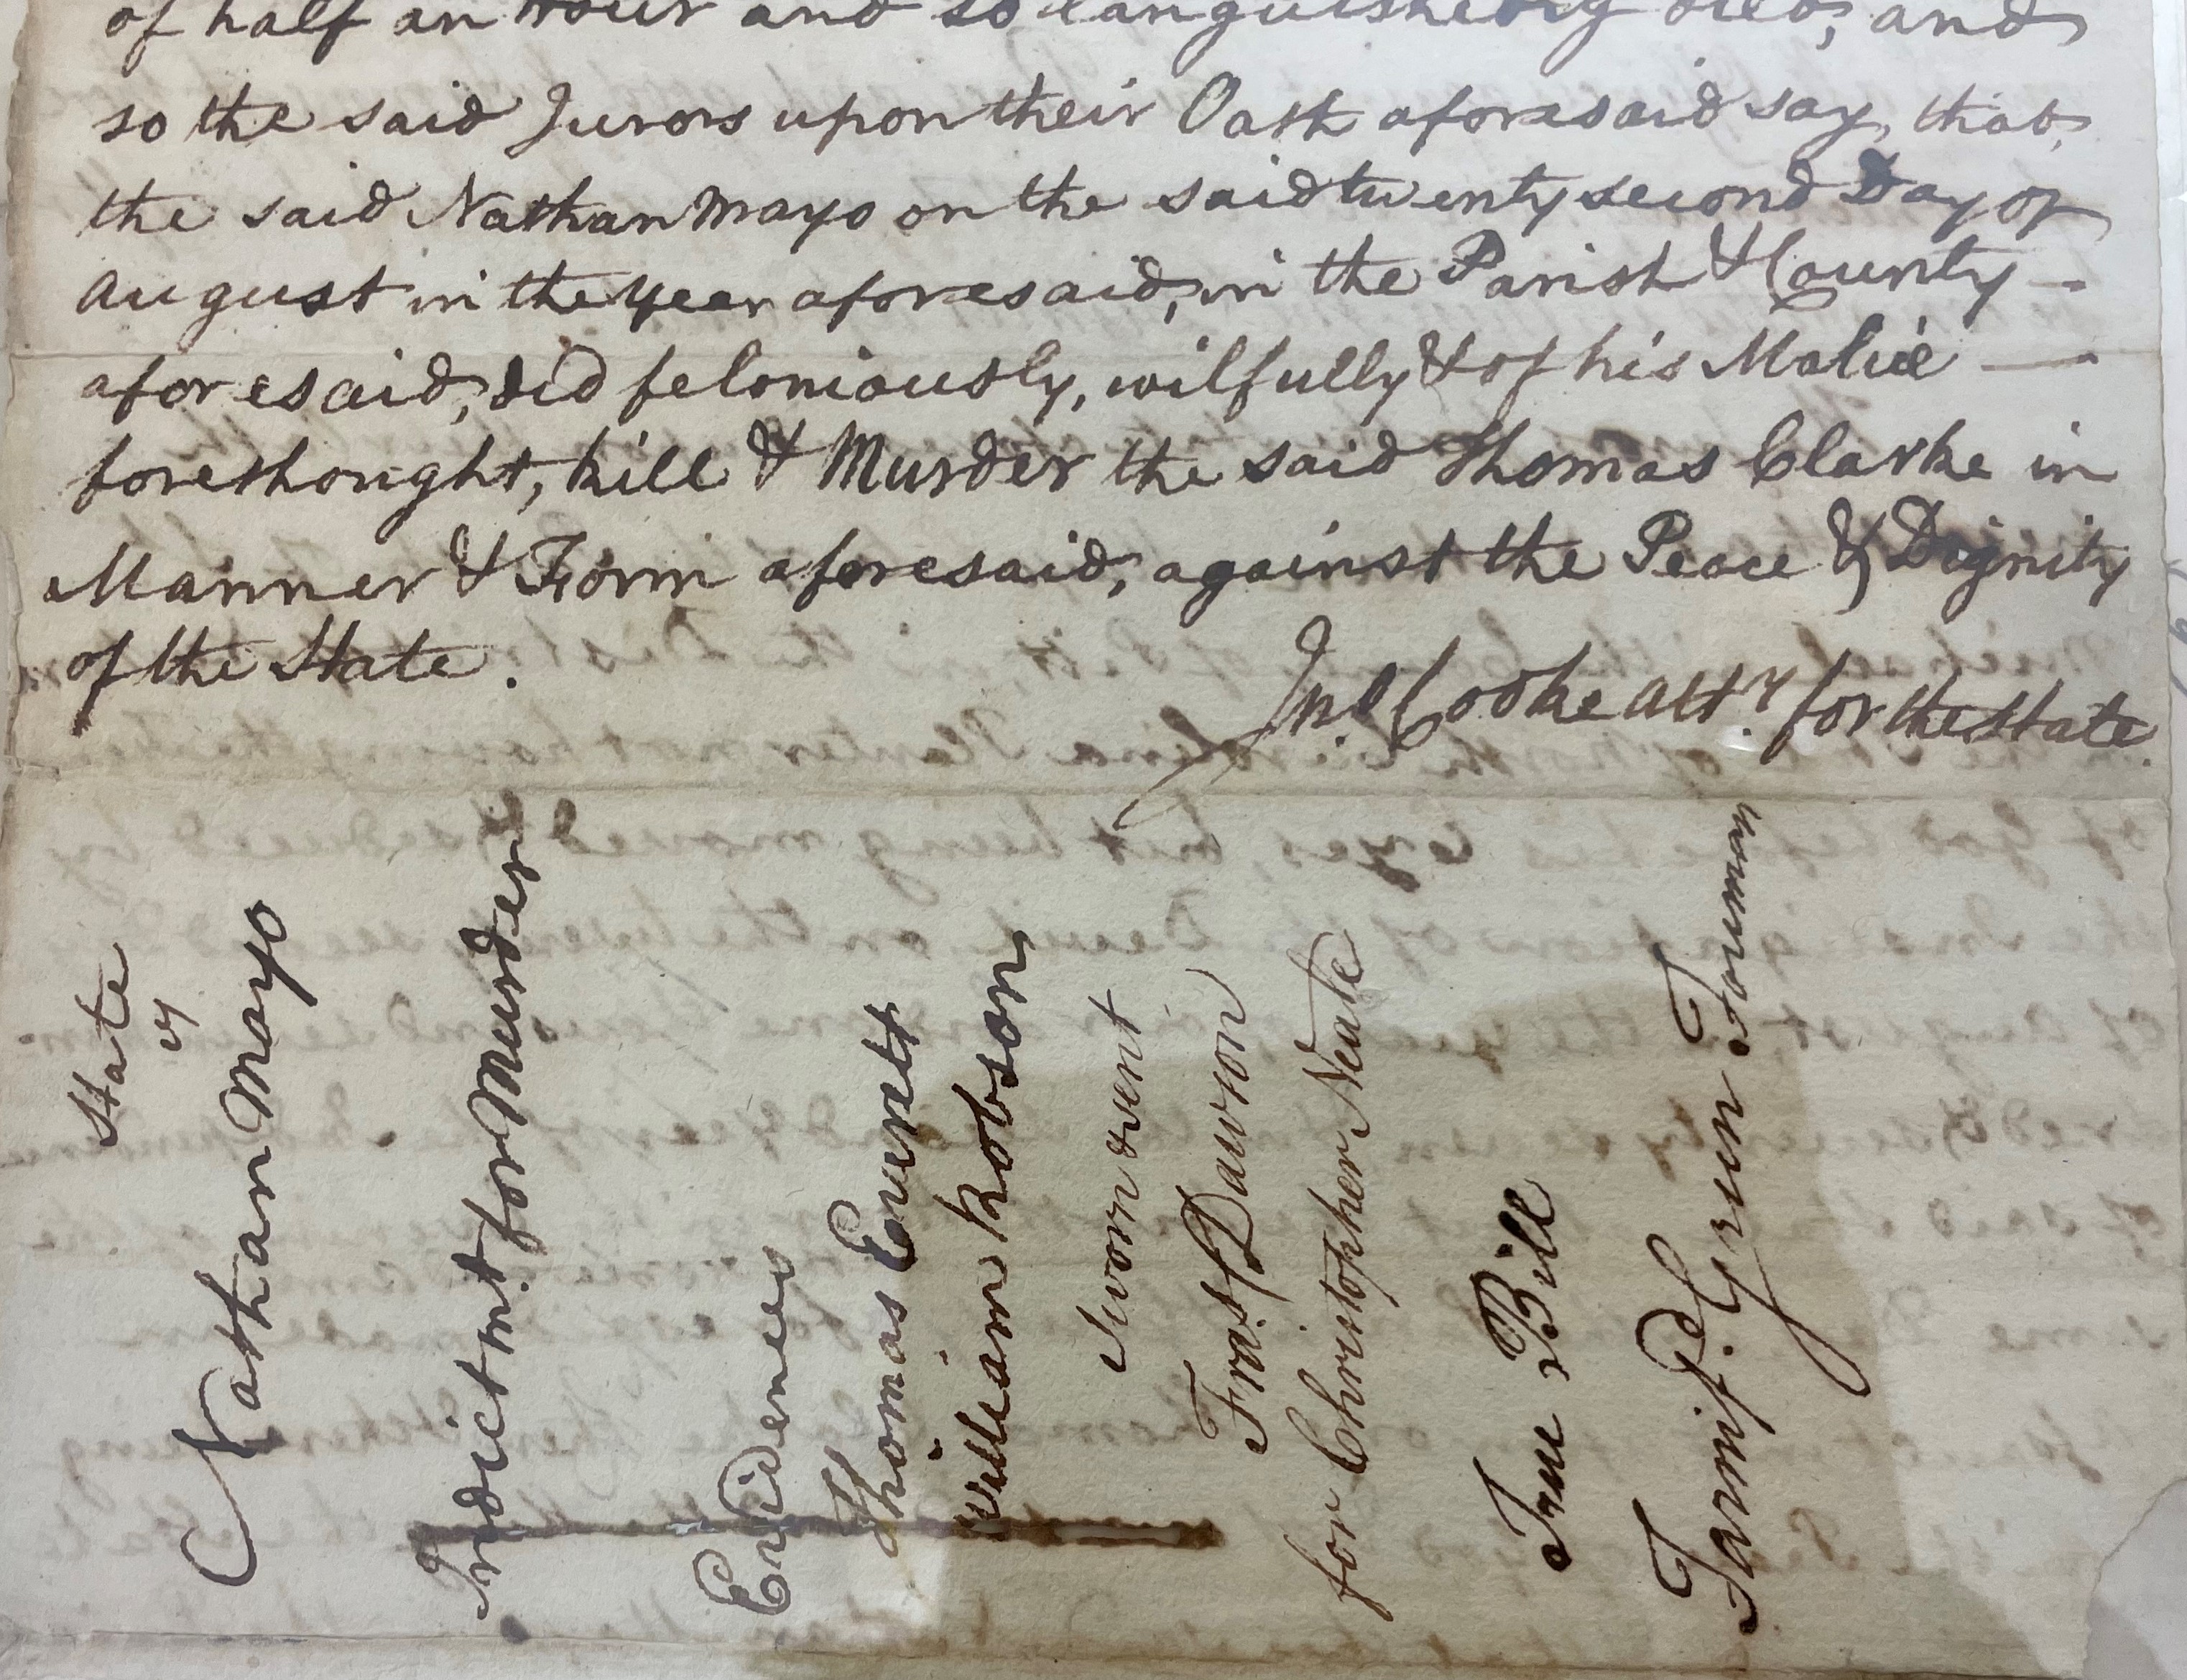 of half an Hour and so languishedly died, and
so the said Jurors upon their Oath aforesaid say, that
the said Nathan Mayo on the said twenty second Day of
August in the year aforesaid, in the Parish & County —
aforesaid, did feloniously, wilfully & of his Malice —
forethought, kill & Murder the said Thomas Clarke in
Manner & Form aforesaid, against the Peace & Dignity
of the State.
Jno. Cooke Attr. for the State
State
vs
Nathan Mayo
Indictmt. for Murder
Evidences
Thomas Everett
William Robson
sworn & sent
Fras. Dawson
for Christopher Neale
True Bill
Furnifd. Green Forman